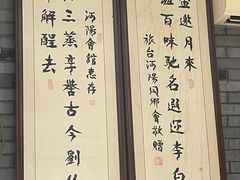 百味馳名遐邇李白
盃邀月來
旅台沔陽同鄉會敬贈
沔陽會館惠存
三蒸享譽古今劉
解醒去